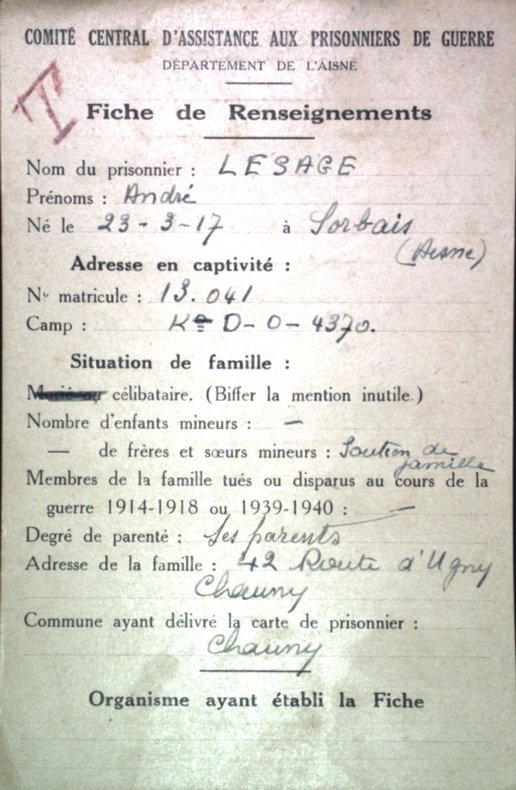 COMITÉ CENTRAL D'ASSISTANCE AUX PRISONNIERS DE GUERRE
DÉPARTEMENT DE L'AISNE
T
Fiche de Renseignements
Nom du prisonnier : LESAGE
Prénoms : André
Né le 23-3-17 à Sorbais
(Aisne)
Adresse en captivité :
N° matricule : 13.041
Camp : D-O-4370.
Situation de famille :
célibataire. (Biffer la mention inutile.)
Nombre d'enfants mineurs : —
— de frères et sœurs mineurs : Soutien de
famille
Membres de la famille tués ou disparus au cours de la
guerre 1914-1918 ou 1939-1940 : —
Degré de parenté : Ses parents
Adresse de la famille : 42 Route d'Ugny
Chauny
Commune ayant délivré la carte de prisonnier :
Chauny
Organisme ayant établi la Fiche